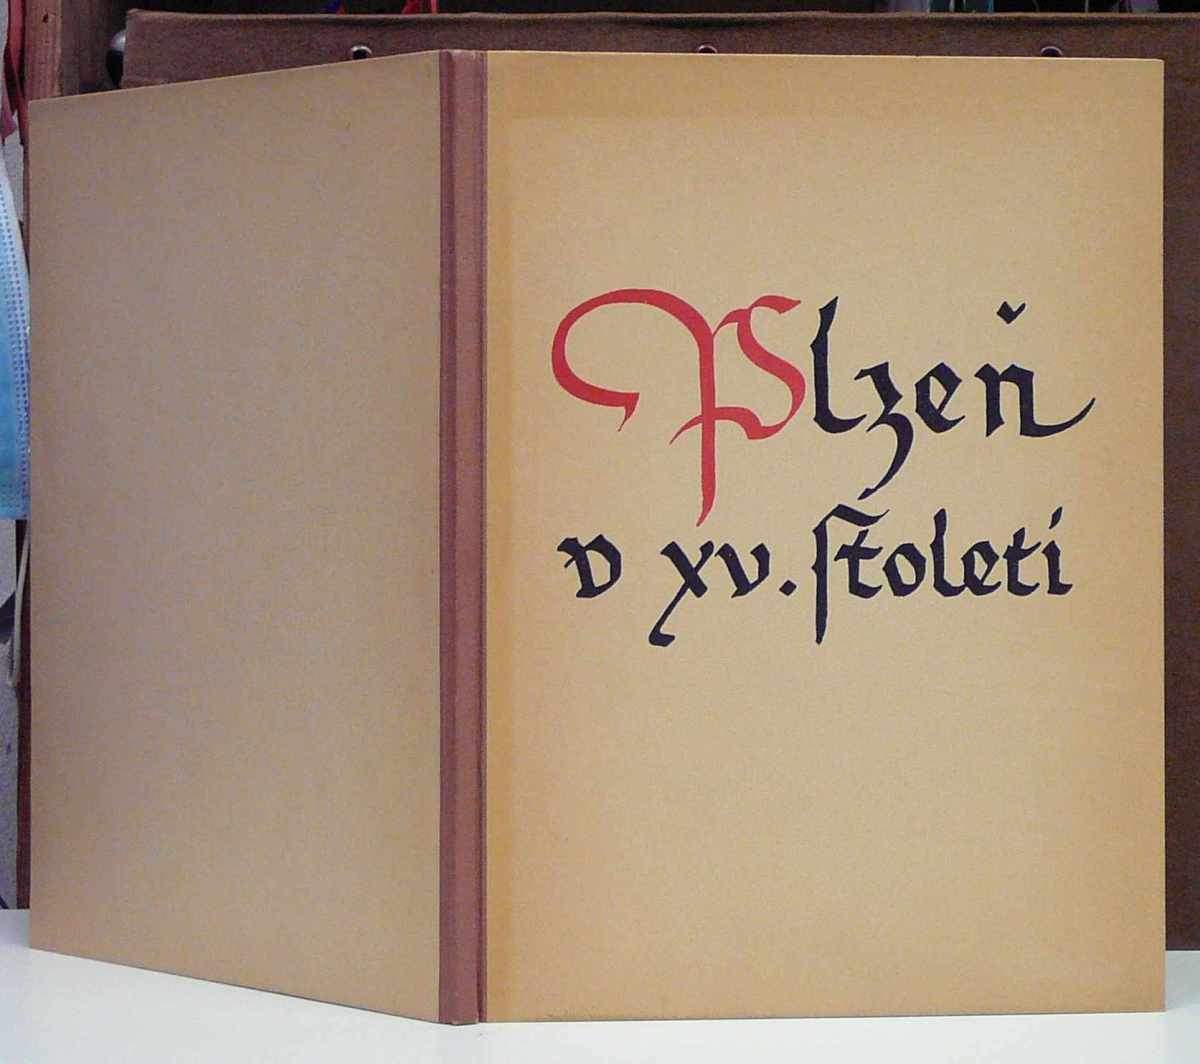 Plzeň
v xv. ſtoletí